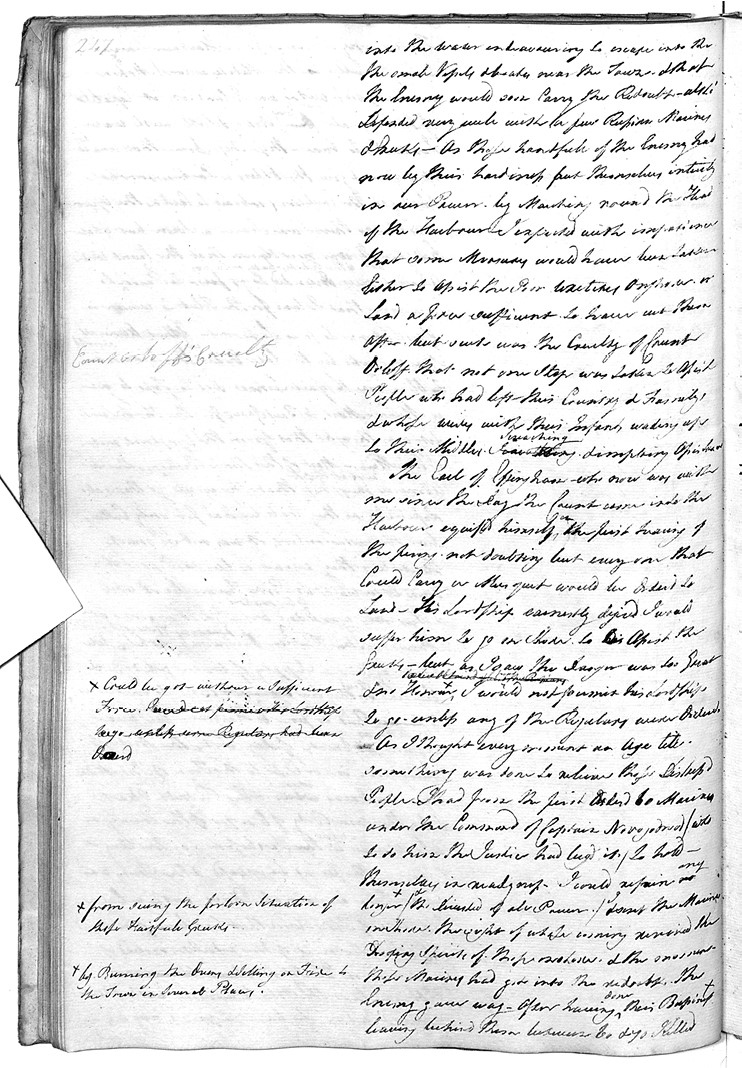 247
into the water endeavouring to escape into the
the small Vessels & boats near the Town & that
the Enemy would soon Carry the Redoubt - altho'
Defended very well with a few Russian Marines
& Greeks - As these handfull of the Enemy had
now by their hardiness put themselves intirely
in our Power by Marching round the Head
of the Harbour I expected with impatience
that some Measures would have been taken
Either to Assist the Poor Wretches on shore or
Land a force sufficient to have cut them
off - but such was the Cruelty of Count
Orloff that not one Step was taken to Assist
People who had left their Country & Families
& whose wives with their Infants wading up
to their Middles Screaching & imploring Assistance
Count Orloff's Cruelty
The Earl of Effingham who now was with
me since the Day the Count came into the
Harbour equiped himself on the first hearing of
the firing not doubting but every one that
Could Carry a Musquet would be Orderd to
Land - His Lordship earnestly desired I would
suffer him to go on Shore to Assist the
Greeks - but as I saw the Danger was too Great
& no Honour + I would not permit his Lordship
to go unless any of the Regulars were Orderd
+ Could be got without a Sufficient
Force
As I thought every moment an Age till
something was done to relieve these Distress'd
People I had from the first Orderd 60 Marines
under the Command of Captain
to do him the Justice had beg'd it / to hold
themselves in readyness. I could refrain no
longer + / tho Divested of all Power / I sent the Marines
on shore. the sight of whose coming revived the
Drooping Spirits of those on shore & the moment
these Marines had got into the redoubt. the
Enemy gave way - After having done their Business +
leaving behind them between 60 & 70 Killed
+ from seeing the forlorn Situation of
these Faithfull Greeks
+ by Burning the Quay & Setting on Fire to
the Town in Several Places.